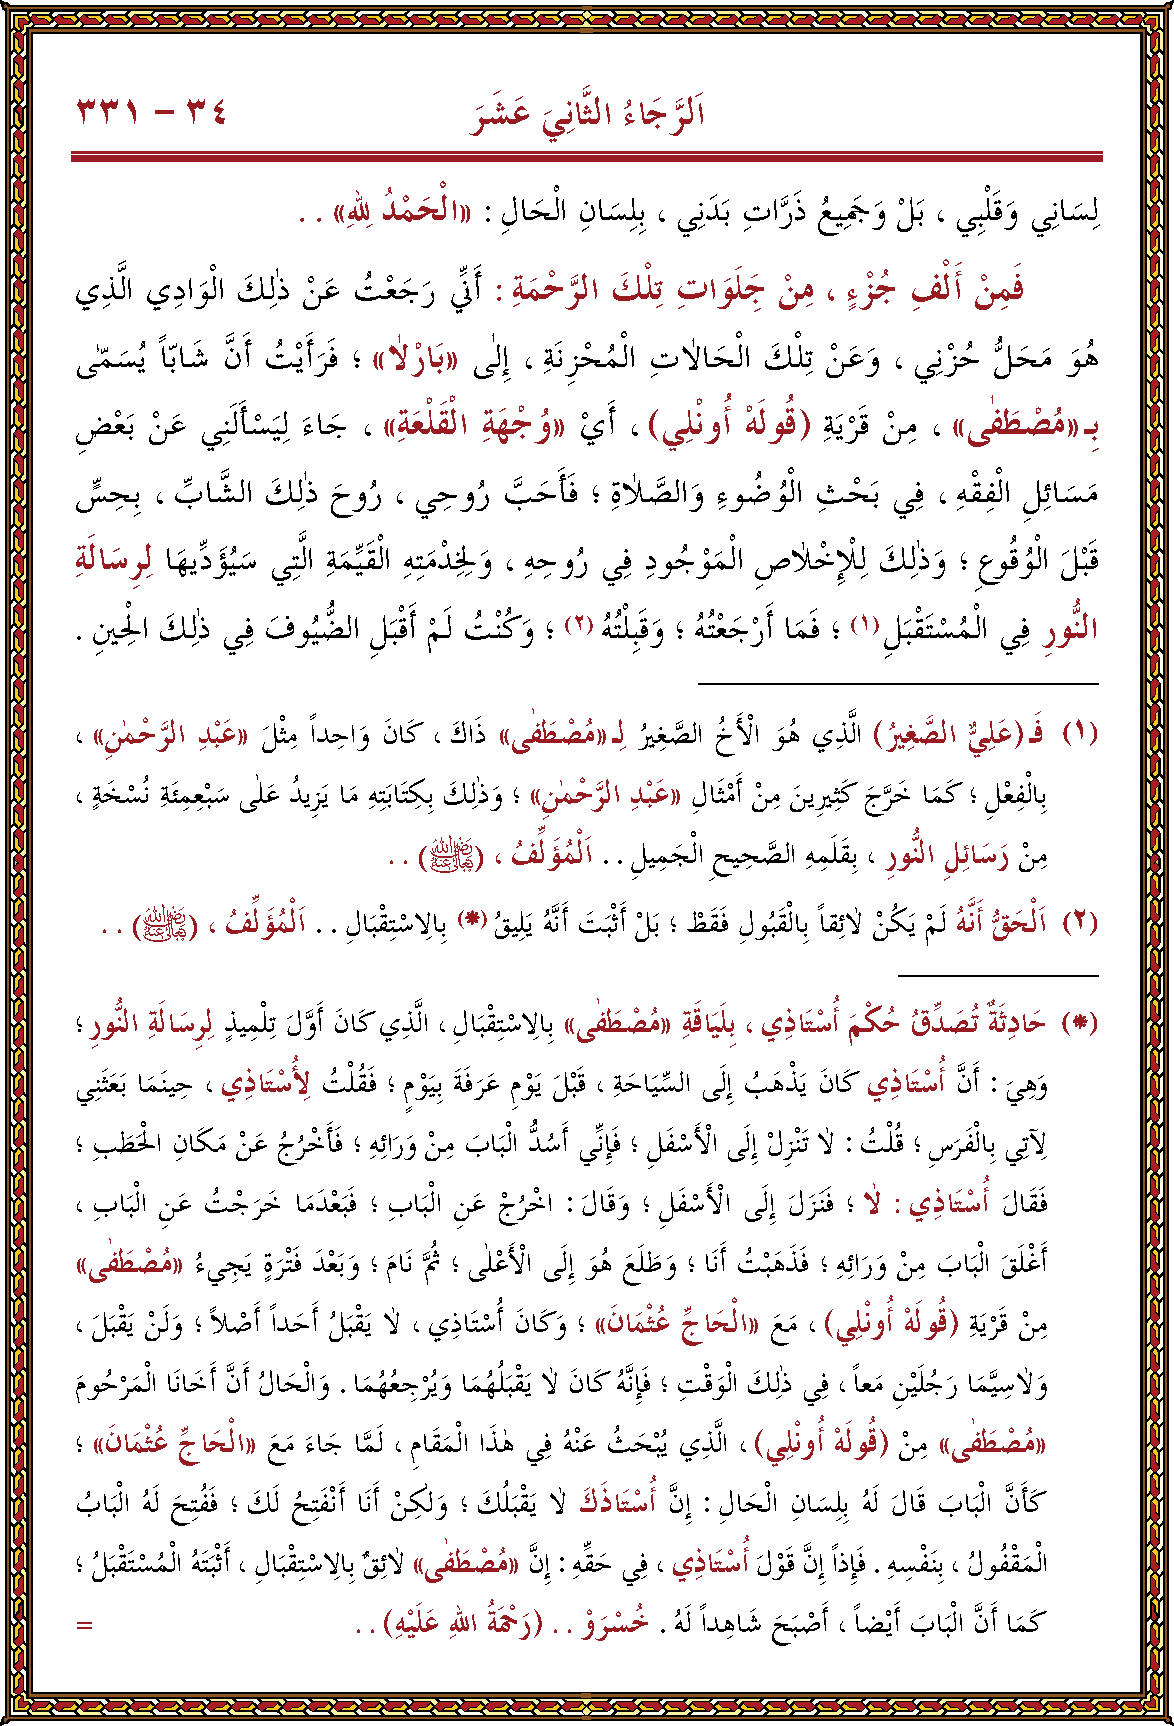 اَلرَّجَاءُ الثَّانِيَ عَشَرَ ٣٤ – ٣٣١
لِسَانِي وَقَلْبِي ، بَلْ وَجَمِيعُ ذَرَّاتِ بَدَنِي ، بِلِسَانِ الْحَالِ : «الْحَمْدُ لِلهِ» . .
فَمِنْ أَلْفِ جُزْءٍ ، مِنْ جَلَوَاتِ تِلْكَ الرَّحْمَةِ : أَنِّي رَجَعْتُ عَنْ ذٰلِكَ الْوَادِي الَّذِي
هُوَ مَحَلُّ حُزْنِي ، وَعَنْ تِلْكَ الْحَالَاتِ الْمُحْزِنَةِ ، إِلٰى «بَارْلَا» ؛ فَرَأَيْتُ أَنَّ شَابّاً يُسَمّٰى
بِـ «مُصْطَفٰى» ، مِنْ قَرْيَةِ (قُولَهْ أُونْلِي) ، أَيْ «وُجْهَةِ الْقَلْعَةِ» ، جَاءَ لِيَسْأَلَنِي عَنْ بَعْضِ
مَسَائِلِ الْفِقْهِ ، فِي بَحْثِ الْوُضُوءِ وَالصَّلَاةِ ؛ فَأَحَبَّ رُوحِي ، رُوحَ ذٰلِكَ الشَّابِّ ، بِحِسٍّ
قَبْلَ الْوُقُوعِ ؛ وَذٰلِكَ لِلْإِخْلَاصِ الْمَوْجُودِ فِي رُوحِهِ ، وَلِخِدْمَتِهِ الْقَيِّمَةِ الَّتِي سَيُؤَدِّيهَا لِرِسَالَةِ
النُّورِ فِي الْمُسْتَقْبَلِ (١) ؛ فَمَا أَرْجَعْتُهُ ؛ وَقَبِلْتُهُ (٢) ؛ وَكُنْتُ لَمْ أَقْبَلِ الضُّيُوفَ فِي ذٰلِكَ الْحِينِ .
(١) فَـ (عَلِيٌّ الصَّغِيرُ) الَّذِي هُوَ الْأَخُ الصَّغِيرُ لِـ «مُصْطَفٰى» ذَاكَ ، كَانَ وَاحِداً مِثْلَ «عَبْدِ الرَّحْمٰنِ» ،
بِالْفِعْلِ ؛ كَمَا خَرَّجَ كَثِيرِينَ مِنْ أَمْثَالِ «عَبْدِ الرَّحْمٰنِ» ؛ وَذٰلِكَ بِكِتَابَتِهِ مَا يَزِيدُ عَلٰى سَبْعِمِئَةِ نُسْخَةٍ ،
مِنْ رَسَائِلِ النُّورِ ، بِقَلَمِهِ الصَّحِيحِ الْجَمِيلِ . . اَلْمُؤَلِّفُ ، (رَضِيَ اللهُ تَعَالَى عَنْهُ) . .
(٢) اَلْحَقُّ أَنَّهُ لَمْ يَكُنْ لَائِقاً بِالْقُبُولِ فَقَطْ ؛ بَلْ أَثْبَتَ أَنَّهُ يَلِيقُ (*) بِالِاسْتِقْبَالِ . . اَلْمُؤَلِّفُ ، (رَضِيَ اللهُ تَعَالَى عَنْهُ) . .
(*) حَادِثَةٌ تُصَدِّقُ حُكْمَ أُسْتَاذِي ، بِلَيَاقَةِ «مُصْطَفٰى» بِالِاسْتِقْبَالِ ، الَّذِي كَانَ أَوَّلَ تِلْمِيذٍ لِرِسَالَةِ النُّورِ ؛
وَهِيَ : أَنَّ أُسْتَاذِي كَانَ يَذْهَبُ إِلَى السِّيَاحَةِ ، قَبْلَ يَوْمِ عَرَفَةَ بِيَوْمٍ ؛ فَقُلْتُ لِأُسْتَاذِي ، حِينَمَا بَعَثَنِي
لِآتِيَ بِالْفَرَسِ ؛ قُلْتُ : لَا تَنْزِلْ إِلَى الْأَسْفَلِ ؛ فَإِنِّي أَسُدُّ الْبَابَ مِنْ وَرَائِهِ ؛ فَأَخْرُجُ عَنْ مَكَانِ الْحَطَبِ ؛
فَقَالَ أُسْتَاذِي : لَا ؛ فَنَزَلَ إِلَى الْأَسْفَلِ ؛ وَقَالَ : اخْرُجْ عَنِ الْبَابِ ؛ فَبَعْدَمَا خَرَجْتُ عَنِ الْبَابِ ،
أَغْلَقَ الْبَابَ مِنْ وَرَائِهِ ؛ فَذَهَبْتُ أَنَا ؛ وَطَلَعَ هُوَ إِلَى الْأَعْلٰى ؛ ثُمَّ نَامَ ؛ وَبَعْدَ فَتْرَةٍ يَجِيءُ «مُصْطَفٰى»
مِنْ قَرْيَةِ (قُولَهْ أُونْلِي) ، مَعَ «الْحَاجِّ عُثْمَانَ» ؛ وَكَانَ أُسْتَاذِي ، لَا يَقْبَلُ أَحَداً أَصْلاً ؛ وَلَنْ يَقْبَلَ ،
وَلَاسِيَّمَا رَجُلَيْنِ مَعاً ، فِي ذٰلِكَ الْوَقْتِ ؛ فَإِنَّهُ كَانَ لَا يَقْبَلُهُمَا وَيُرْجِعُهُمَا . وَالْحَالُ أَنَّ أَخَانَا الْمَرْحُومَ
«مُصْطَفٰى» مِنْ (قُولَهْ أُونْلِي) ، الَّذِي يُبْحَثُ عَنْهُ فِي هٰذَا الْمَقَامِ ، لَمَّا جَاءَ مَعَ «الْحَاجِّ عُثْمَانَ» ؛
كَأَنَّ الْبَابَ قَالَ لَهُ بِلِسَانِ الْحَالِ : إِنَّ أُسْتَاذَكَ لَا يَقْبَلُكَ ؛ وَلٰكِنْ أَنَا أَنْفَتِحُ لَكَ ؛ فَفُتِحَ لَهُ الْبَابُ
الْمَقْفُولُ ، بِنَفْسِهِ . فَإِذاً إِنَّ قَوْلَ أُسْتَاذِي ، فِي حَقِّهِ : إِنَّ «مُصْطَفٰى» لَائِقٌ بِالِاسْتِقْبَالِ ، أَثْبَتَهُ الْمُسْتَقْبَلُ ؛
كَمَا أَنَّ الْبَابَ أَيْضاً ، أَصْبَحَ شَاهِداً لَهُ . خُسْرَوْ . . (رَحْمَةُ اللهِ عَلَيْهِ) . . =